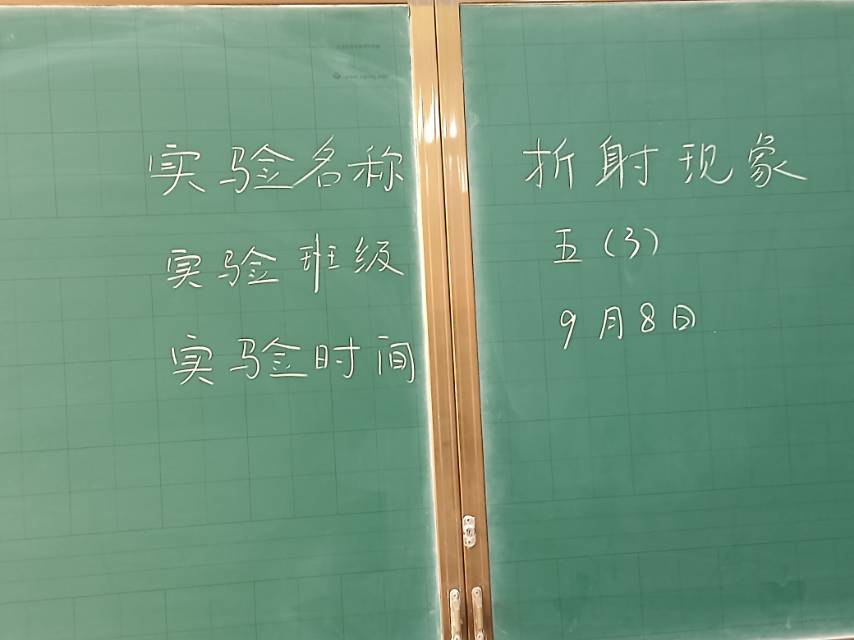 实验名称 折射现象
实验班级 五(3)
实验时间 9月8日